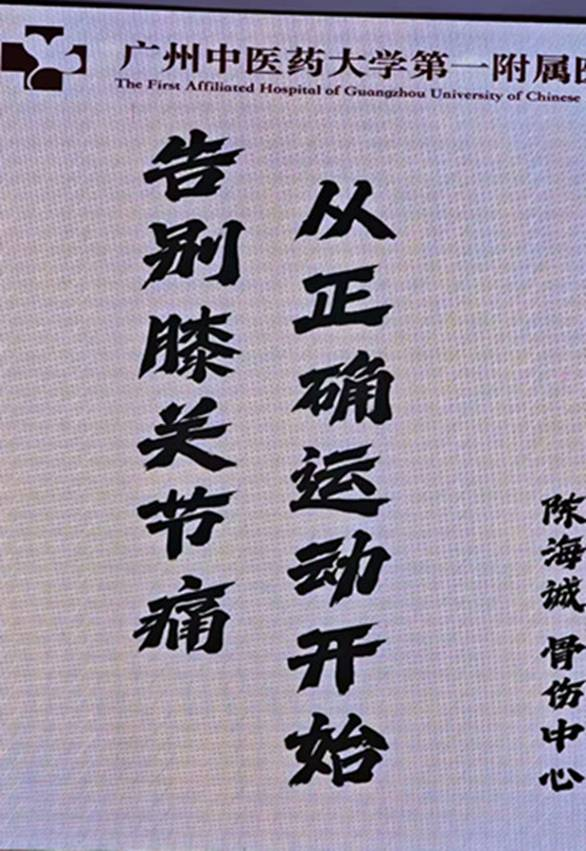 广州中医药大学第一附属医
The First Affiliated Hospital of Guangzhou University of Chinese
告别膝关节痛
从正确运动开始
陈海诚 骨伤中心